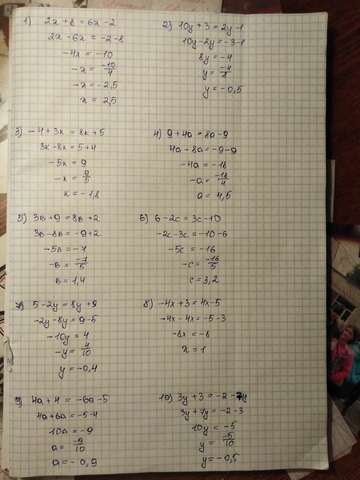 1) 2x + 8 = 6x - 2
2x - 6x = -2 - 8
-4x = -10
-x = -10/4
-x = -2,5
x = 2,5
2) 10y + 3 = 2y - 1
10y - 2y = -3 - 1
8y = -4
y = -4/8
y = -0,5
3) -4 + 3x = 8x + 5
3x - 8x = 5 + 4
-5x = 9
-x = 9/5
x = -1,8
4) 9 + 4a = 8a - 9
4a - 8a = -9 - 9
-4a = -18
-a = -18/4
a = 4,5
5) 3в + 9 = 8в + 2
3в - 8в = -9 + 2
-5в = -7
-в = -7/5
в = 1,4
6) 6 - 2c = 3c - 10
-2c - 3c = -10 - 6
-5c = -16
-c = -16/5
c = 3,2
7) 5 - 2y = 8y + 9
-2y - 8y = 9 - 5
-10y = 4
-y = 4/10
y = -0,4
8) -4x + 3 = 4x - 5
-4x - 4x = -5 - 3
-8x = -8
x = 1
9) 4a + 4 = -6a - 5
4a + 6a = -5 - 4
10a = -9
a = -9/10
a = -0,9
10) 3y + 3 = -2 - 7y
3y + 7y = -2 - 3
10y = -5
y = -5/10
y = -0,5